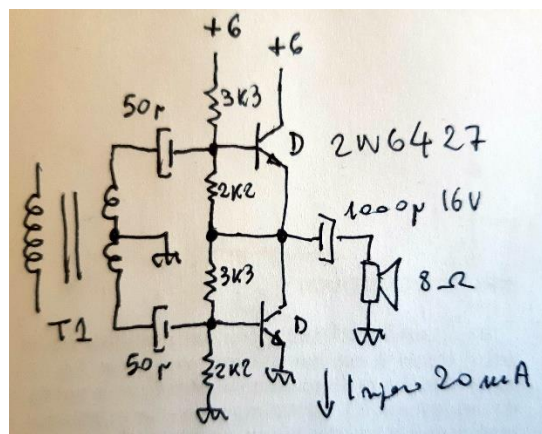 +6
+6
3K3
50μ
D
2N6427
2K2
1000μ 16V
3K3
8Ω
T1
D
50μ
2K2
20mA